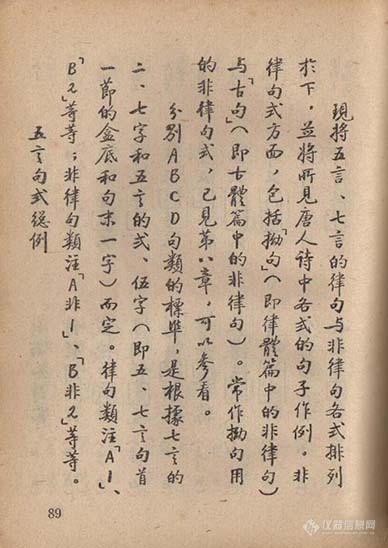 現將五言、七言的律句与非律句各式排列
於下，並將所見唐人詩中各式的句子作例。非
律句式方面，包括「拗句」（即律體篇中的非律句）
与「古句」（即古體篇中的非律句）。常作拗句用
的非律句式，已見第八章，可以參看。
分别ABCD句類的標準，是根據七言的
二、七字和五言的式、伍字（即五、七言句首
一節的盒底和句末一字）而定。律句類注「A1」、
「B2」等等；非律句類注「A非1」、「B非2」等等。
五言句式總例
89
仪器信息网
www.instrument.com.cn